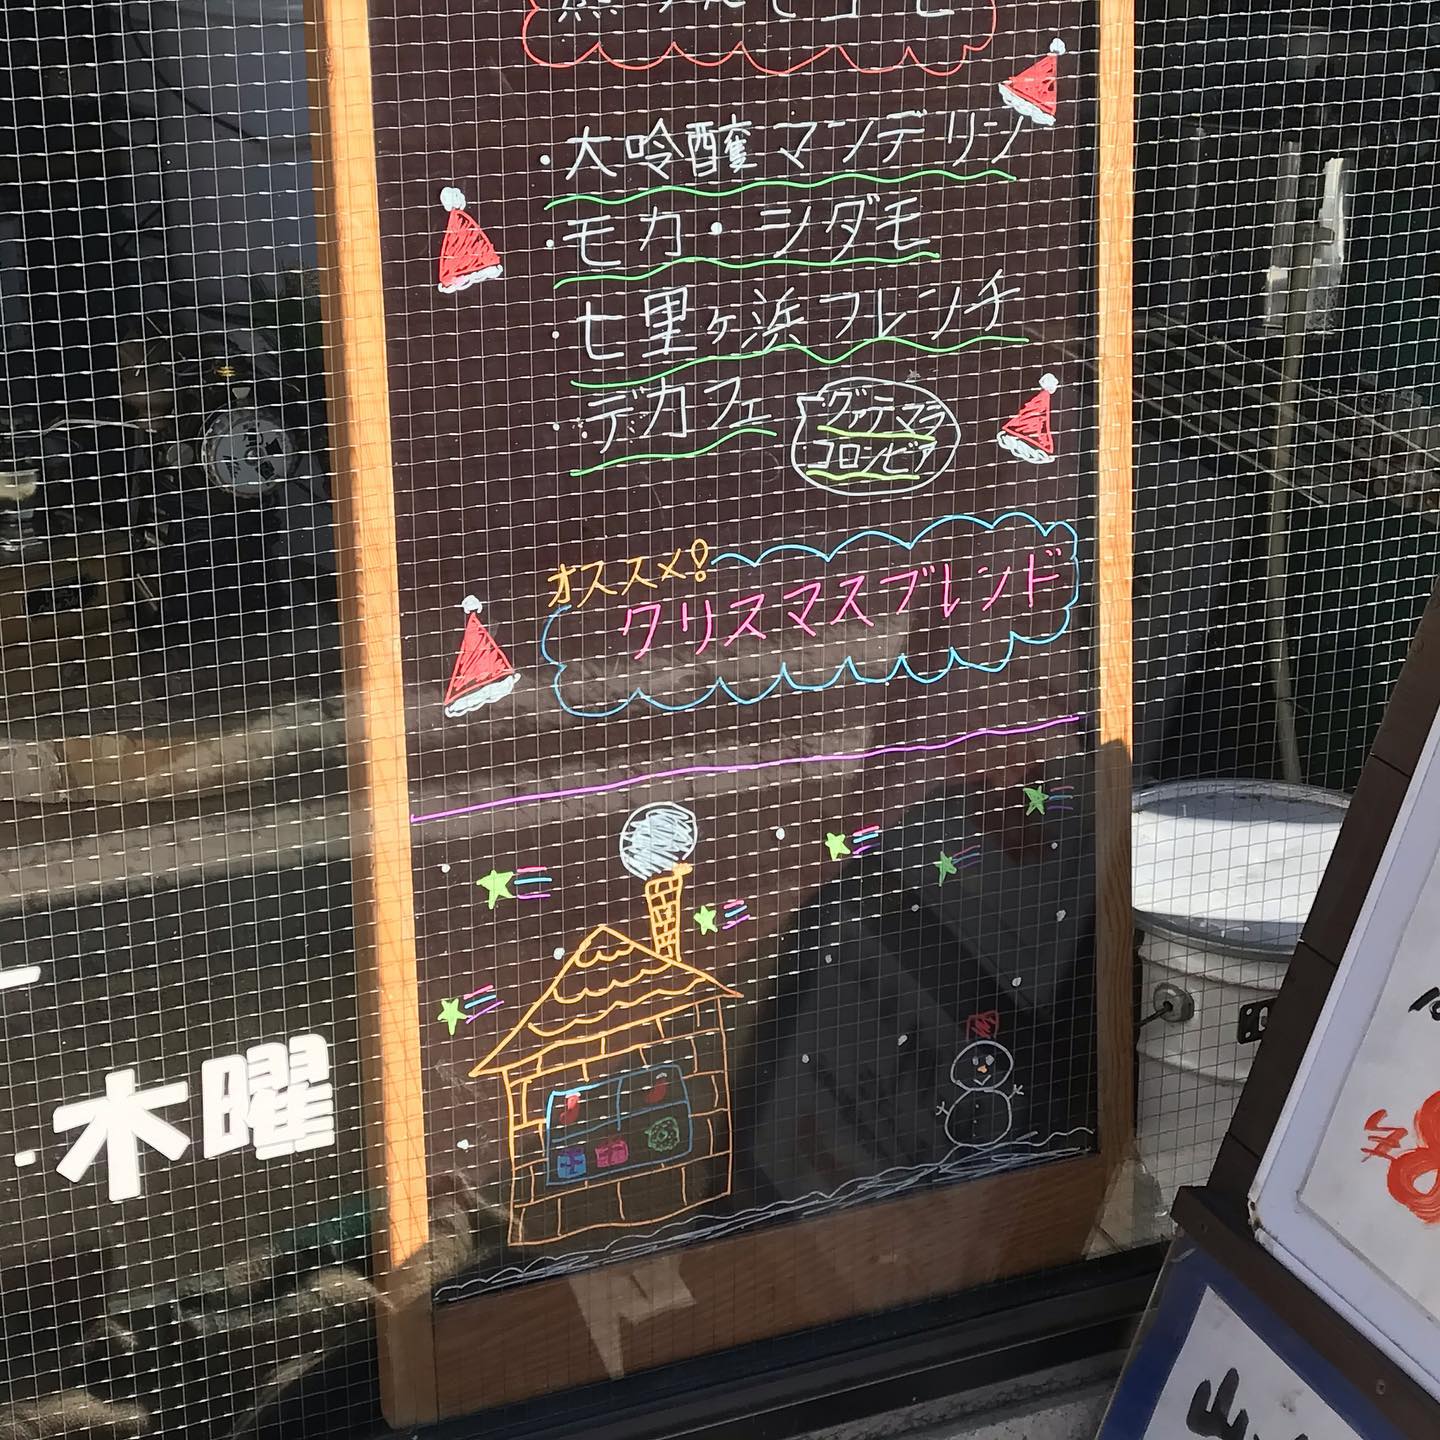 ・大吟醸マンデリン
・モカ・シダモ
・七里ヶ浜フレンチ
・デカフェ
グァテマラ
コロンビア
オススメ!
クリスマスブレンド
・木曜